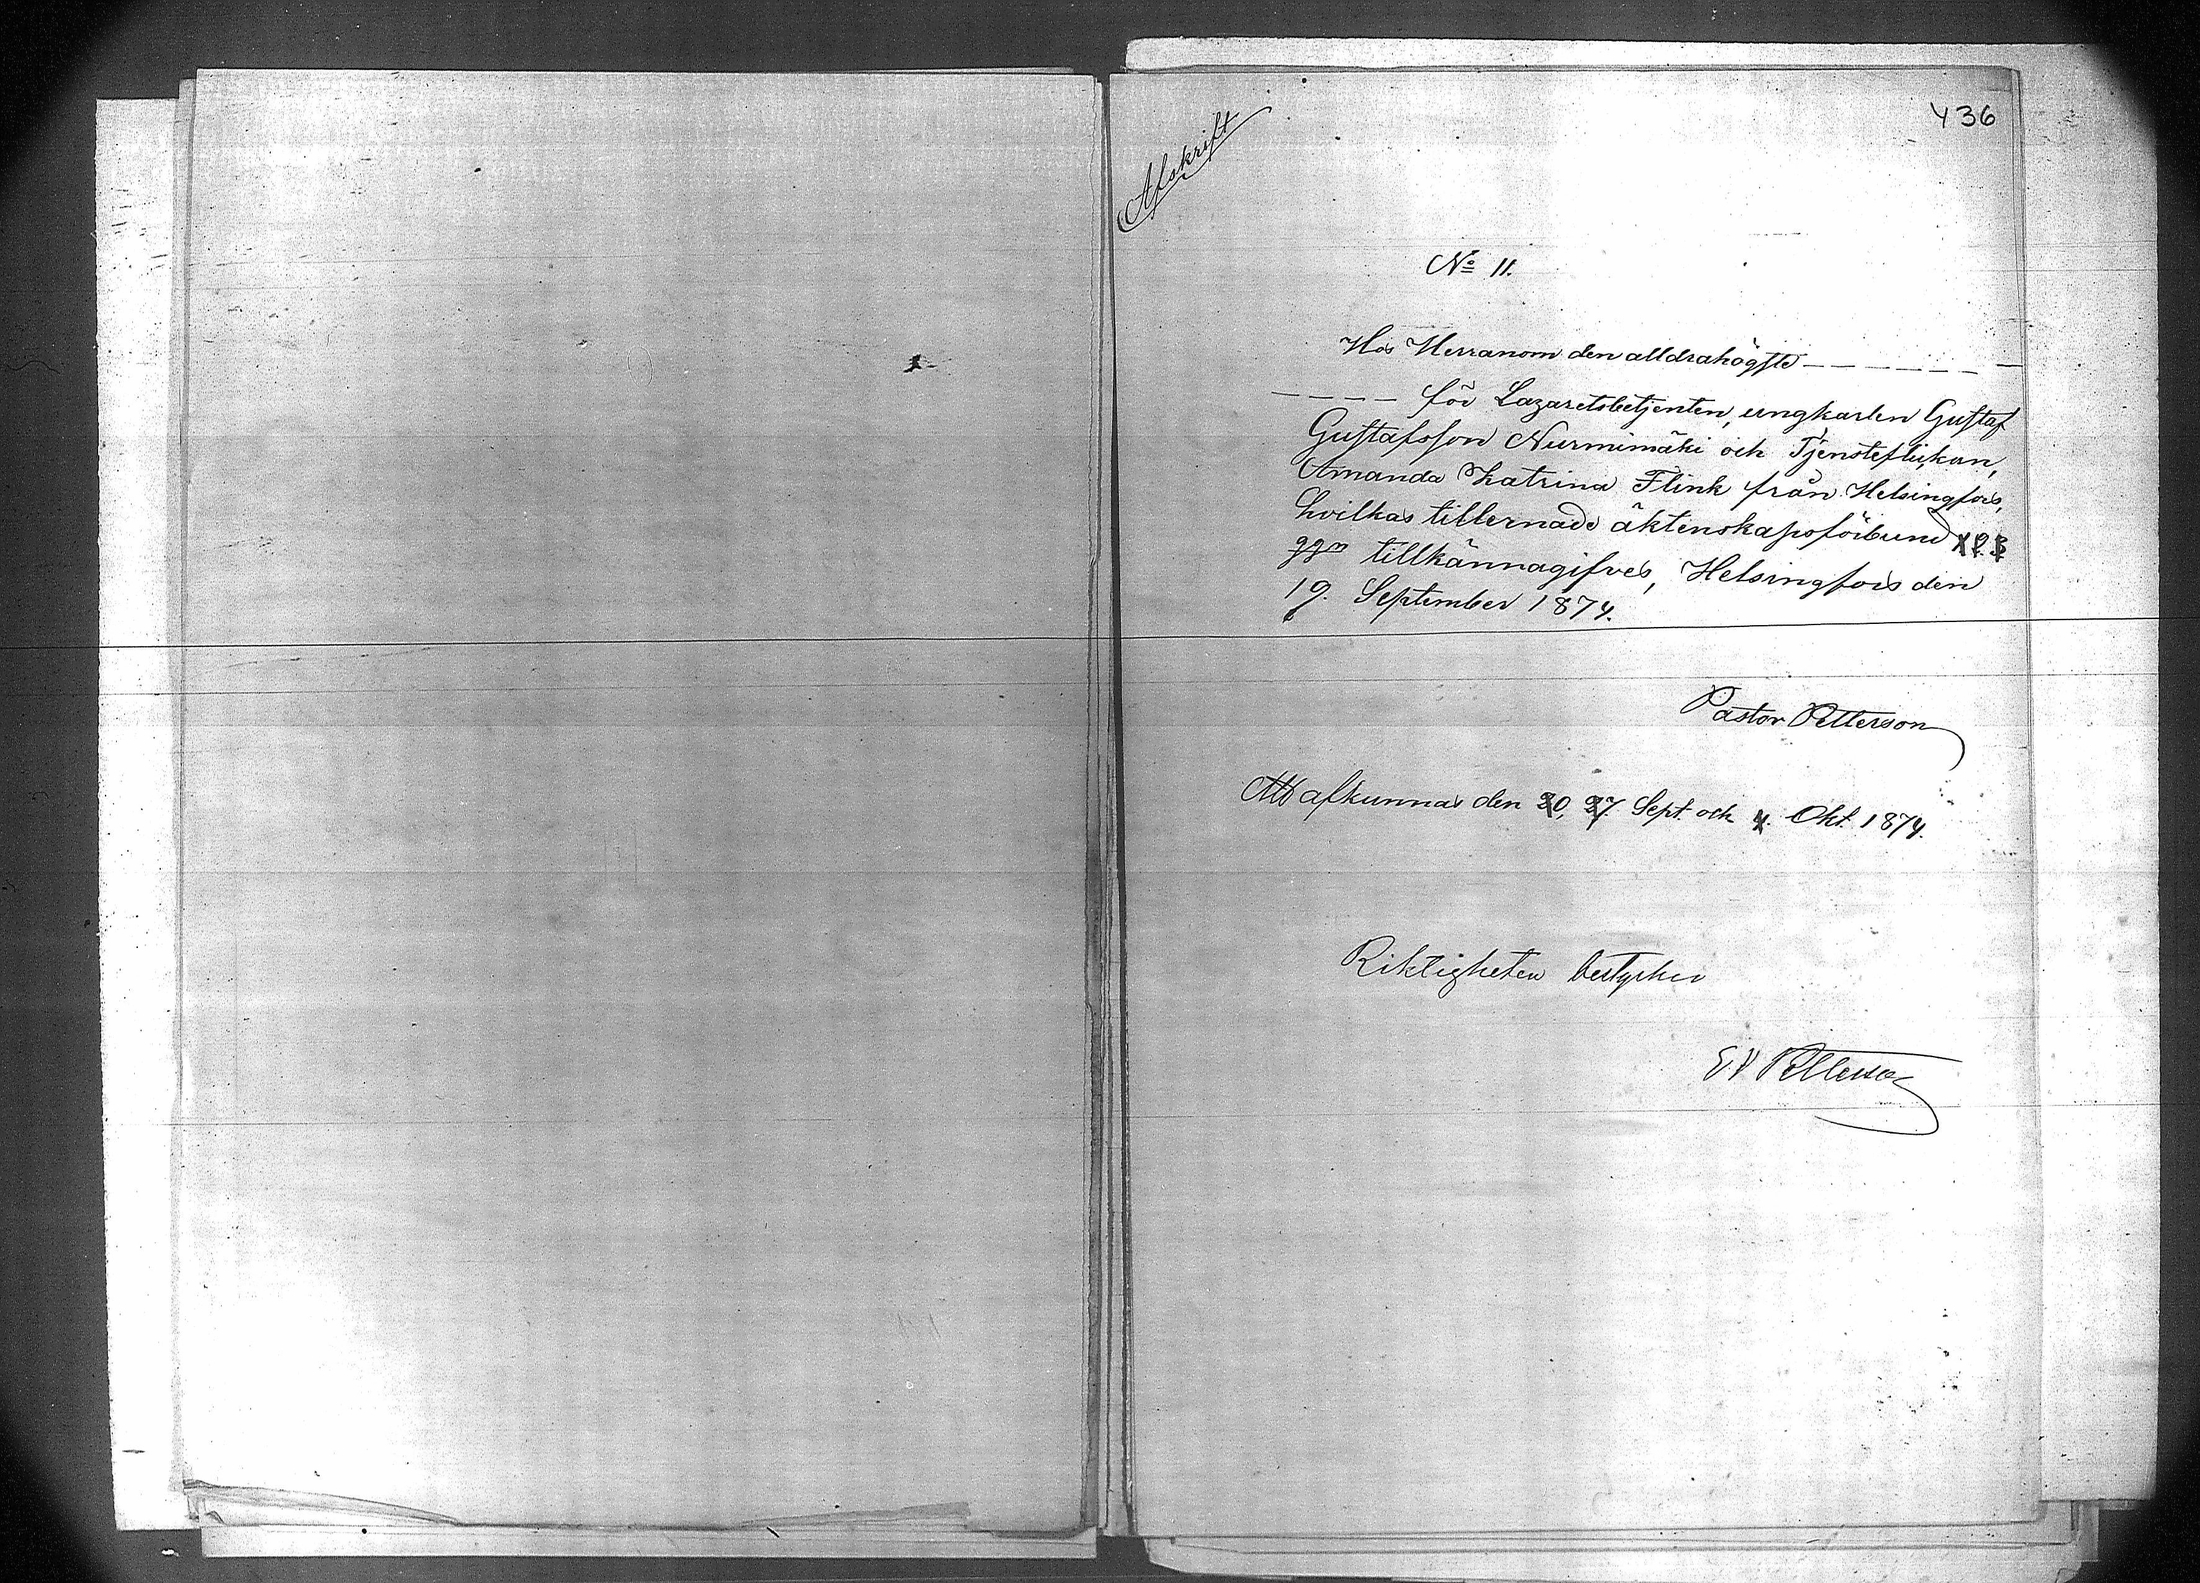 436
Afskrift
No 11.
Hos Herranom den alldrahögste – – – – – – –
– – – – för Lazaretsbetjenten, ungkarlen Gustaf
Gustafsson Nurmimäki och Tjensteflickan,
Amanda Katrina Flink från Helsingfors,
hvilkas tillernade äktenskapsförbund 1 2 3
ggn tillkännagifves, Helsingfors den
19. September 1874.
Pastor Petterson
Att afkunnas den 20, 27. Sept. och 4. Okt. 1874.
Riktigheten bestyrker
E V Petterson